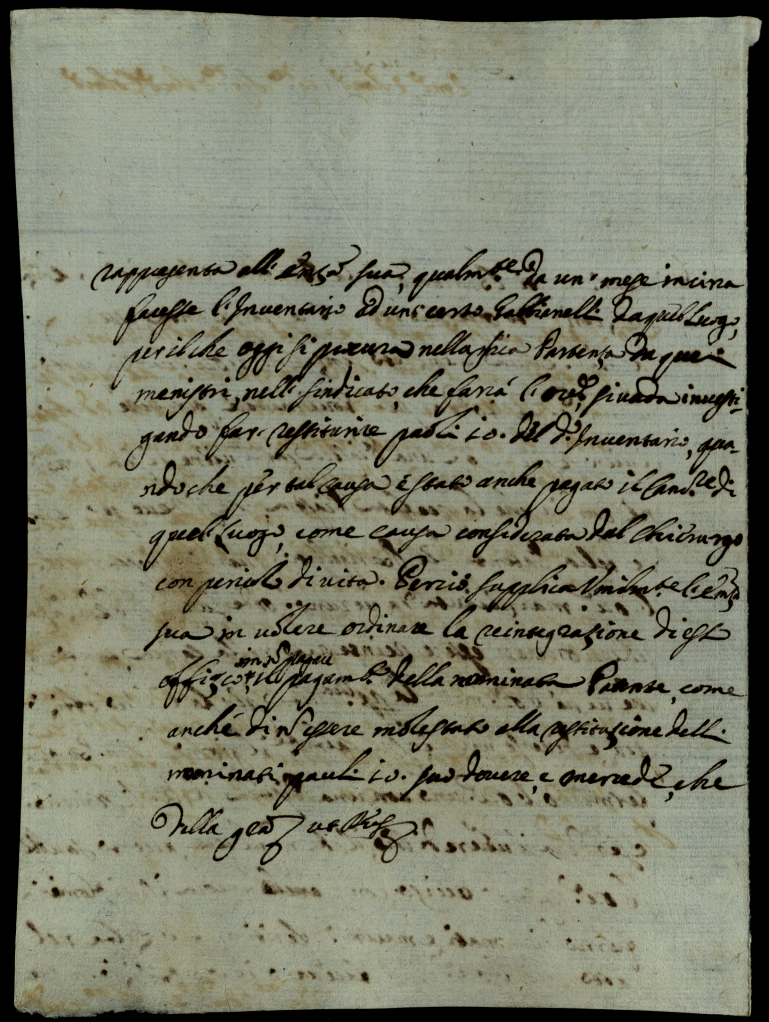 rappresenta all'Em.za sua, qualm.te da un' mese in circa
facesse l'Inventario ad un certo Gabbrienelli da quel Luogo,
per il che oggi si procura nella sua Partenza da quei
menistri, nell' sindicato, che farrà l' si vada investi-
gando far' restituire paoli 10. del d.o Inventario, qua-
ndo che per tal causa è stato anche pagato il Canc.re di
quel Luogo, come causa considerata dal Chirurgo
con pericolo di vita. Perciò supplica Umilm.te l'Em.za
sua in volere ordinare la reintegrazione di
offizio, il pagam.to della nominata Patente, come
anche di n' essere molestato alla restituzione delli
nominati pauli 10. suo dovere, e mercede, che
della gra